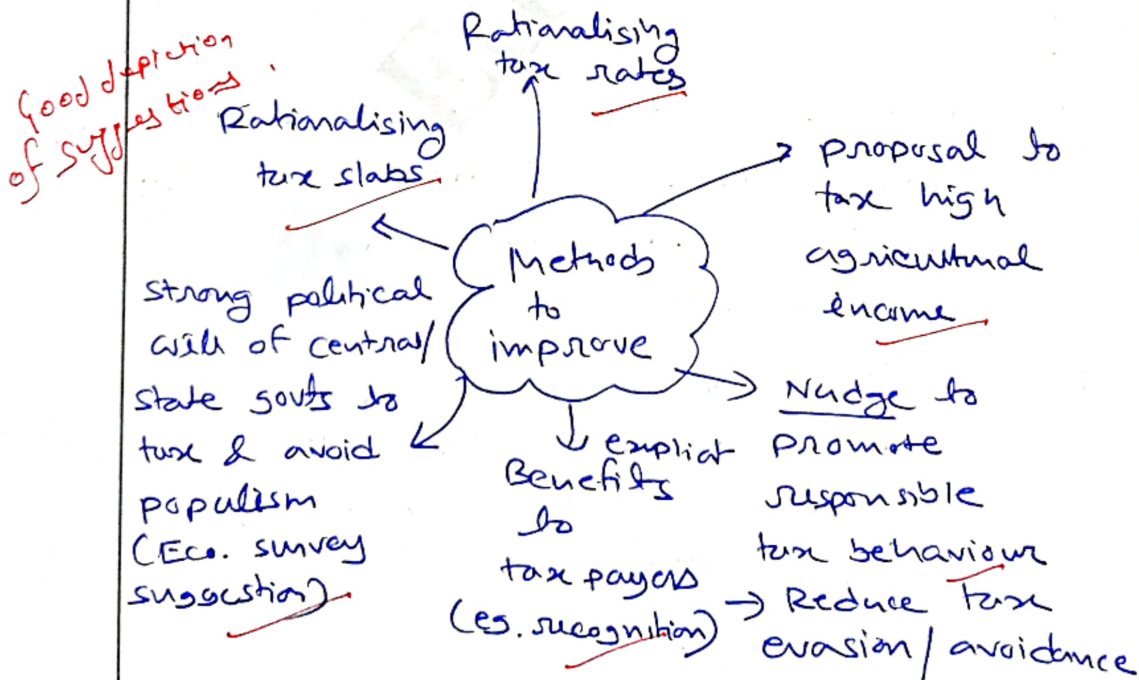 Good depiction
of suggestions.
Rationalising
tax rates
Rationalising
tax slabs
proposal to
tax high
agricultural
income
Methods
to
improve
strong political
will of central/
state govts to
tax & avoid
populism
(Eco. survey
suggestion)
explicit
Benefits
to
tax payers
(eg. recognition)
Nudge to
promote
responsible
tax behaviour
→ Reduce tax
evasion / avoidance